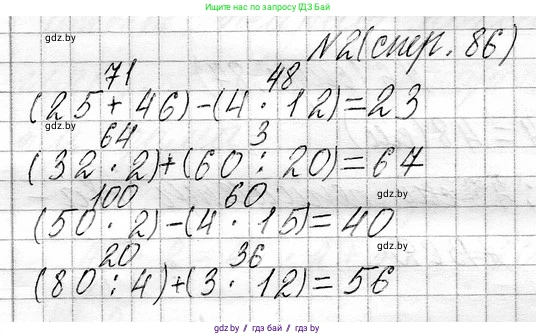 Ищите нас по запросу ГДЗ Бай
gdz.by
№2(стр. 86)
71 48
(25 + 46) - (4 · 12) = 23
gdz.by
64 3
(32 · 2) + (60 : 20) = 67
100 60
gdz.by
(50 · 2) - (4 · 15) = 40
gdz.by
20 36
(80 : 4) + (3 · 12) = 56
gdz.by / гдз бай / gdz.by / гдз бай / gdz.by